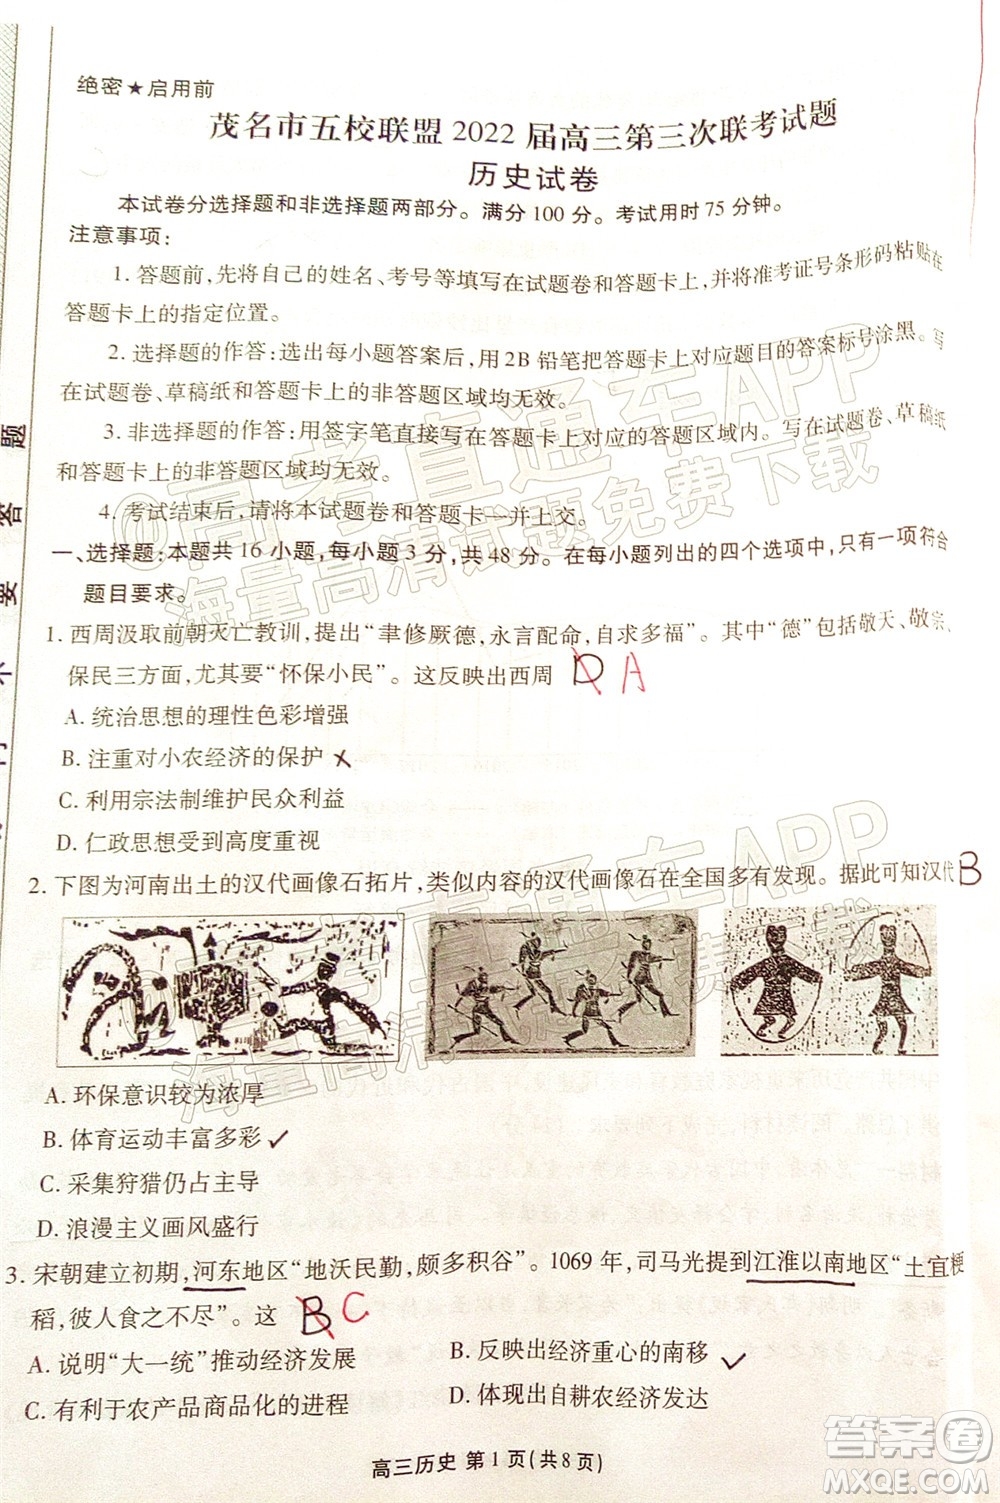 绝密★启用前
茂名市五校联盟 2022 届高三第三次联考试题
历史试卷
本试卷分选择题和非选择题两部分。满分 100 分。考试用时 75 分钟。
注意事项：
1. 答题前，先将自己的姓名、考号等填写在试题卷和答题卡上，并将准考证号条形码粘贴在
答题卡上的指定位置。
2. 选择题的作答：选出每小题答案后，用 2B 铅笔把答题卡上对应题目的答案标号涂黑。写在
试题卷、草稿纸和答题卡上的非答题区域均无效。
3. 非选择题的作答：用签字笔直接写在答题卡上对应的答题区域内。写在试题卷、草稿纸
和答题卡上的非答题区域均无效。
4. 考试结束后，请将本试题卷和答题卡一并上交。
一、选择题：本题共 16 小题，每小题 3 分，共 48 分。在每小题列出的四个选项中，只有一项符合
题目要求。
1. 西周汲取前朝灭亡教训，提出“聿修厥德，永言配命，自求多福”。其中“德”包括敬天、敬宗、
保民三方面，尤其要“怀保小民”。这反映出西周 D A
A. 统治思想的理性色彩增强
B. 注重对小农经济的保护
C. 利用宗法制维护民众利益
D. 仁政思想受到高度重视
2. 下图为河南出土的汉代画像石拓片，类似内容的汉代画像石在全国多有发现。据此可知汉代 B
A. 环保意识较为浓厚
B. 体育运动丰富多彩 ✓
C. 采集狩猎仍占主导
D. 浪漫主义画风盛行
3. 宋朝建立初期，河东地区“地沃民勤，颇多积谷”。1069 年，司马光提到江淮以南地区“土宜粳
稻，彼人食之不尽”。这 B C
A. 说明“大一统”推动经济发展
B. 反映出经济重心的南移 ✓
C. 有利于农产品商品化的进程
D. 体现出自耕农经济发达
高三历史 第 1 页(共 8 页)
题
答
要
@高考直通车APP
海量高清试题免费下载
@高考直通车APP
海量高清试题免费下载
答案圈
MXQE.COM